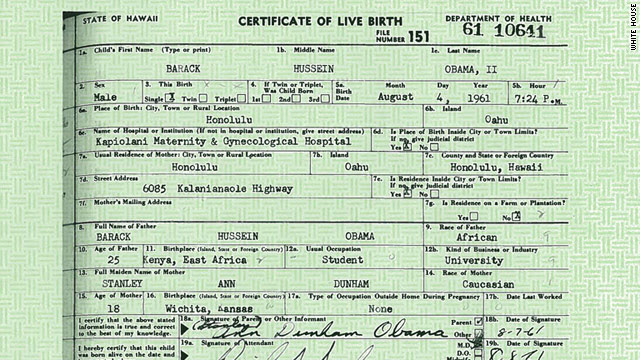 STATE OF HAWAII CERTIFICATE OF LIVE BIRTH DEPARTMENT OF HEALTH
FILE NUMBER 151 61 10641
1a. Child's First Name (Type or print) 1b. Middle Name 1c. Last Name
BARACK HUSSEIN OBAMA, II
2. Sex 3. This Birth 4. If Twin or Triplet, Was Child Born 5a. Birth Date Month Day Year 5b. Hour
Male Single X Twin Triplet 1st 2nd 3rd August 4, 1961 7:24 P.M.
6a. Place of Birth: City, Town or Rural Location 6b. Island
Honolulu Oahu
6c. Name of Hospital or Institution (If not in hospital or institution, give street address) 6d. Is Place of Birth Inside City or Town Limits? If no, give judicial district
Kapiolani Maternity & Gynecological Hospital Yes X No
7a. Usual Residence of Mother: City, Town or Rural Location 7b. Island 7c. County and State or Foreign Country
Honolulu Oahu Honolulu, Hawaii
7d. Street Address 7e. Is Residence Inside City or Town Limits? If no, give judicial district
6085 Kalanianaole Highway Yes X No
7f. Mother's Mailing Address 7g. Is Residence on a Farm or Plantation?
Yes No X
8. Full Name of Father 9. Race of Father
BARACK HUSSEIN OBAMA African
10. Age of Father 11. Birthplace (Island, State or Foreign Country) 12a. Usual Occupation 12b. Kind of Business or Industry
25 Kenya, East Africa Student University
13. Full Maiden Name of Mother 14. Race of Mother
STANLEY ANN DUNHAM Caucasian
15. Age of Mother 16. Birthplace (Island, State or Foreign Country) 17a. Type of Occupation Outside Home During Pregnancy 17b. Date Last Worked
18 Wichita, Kansas None
I certify that the above stated information is true and correct to the best of my knowledge. 18a. Signature of Parent or Other Informant Parent Other 18b. Date of Signature
(Stanley) Ann Dunham Obama 8-7-61
I hereby certify that this child was born alive on the date and 19a. Signature of Attendant M.D. D.O. 19b. Date of Signature
WHITE HOUSE